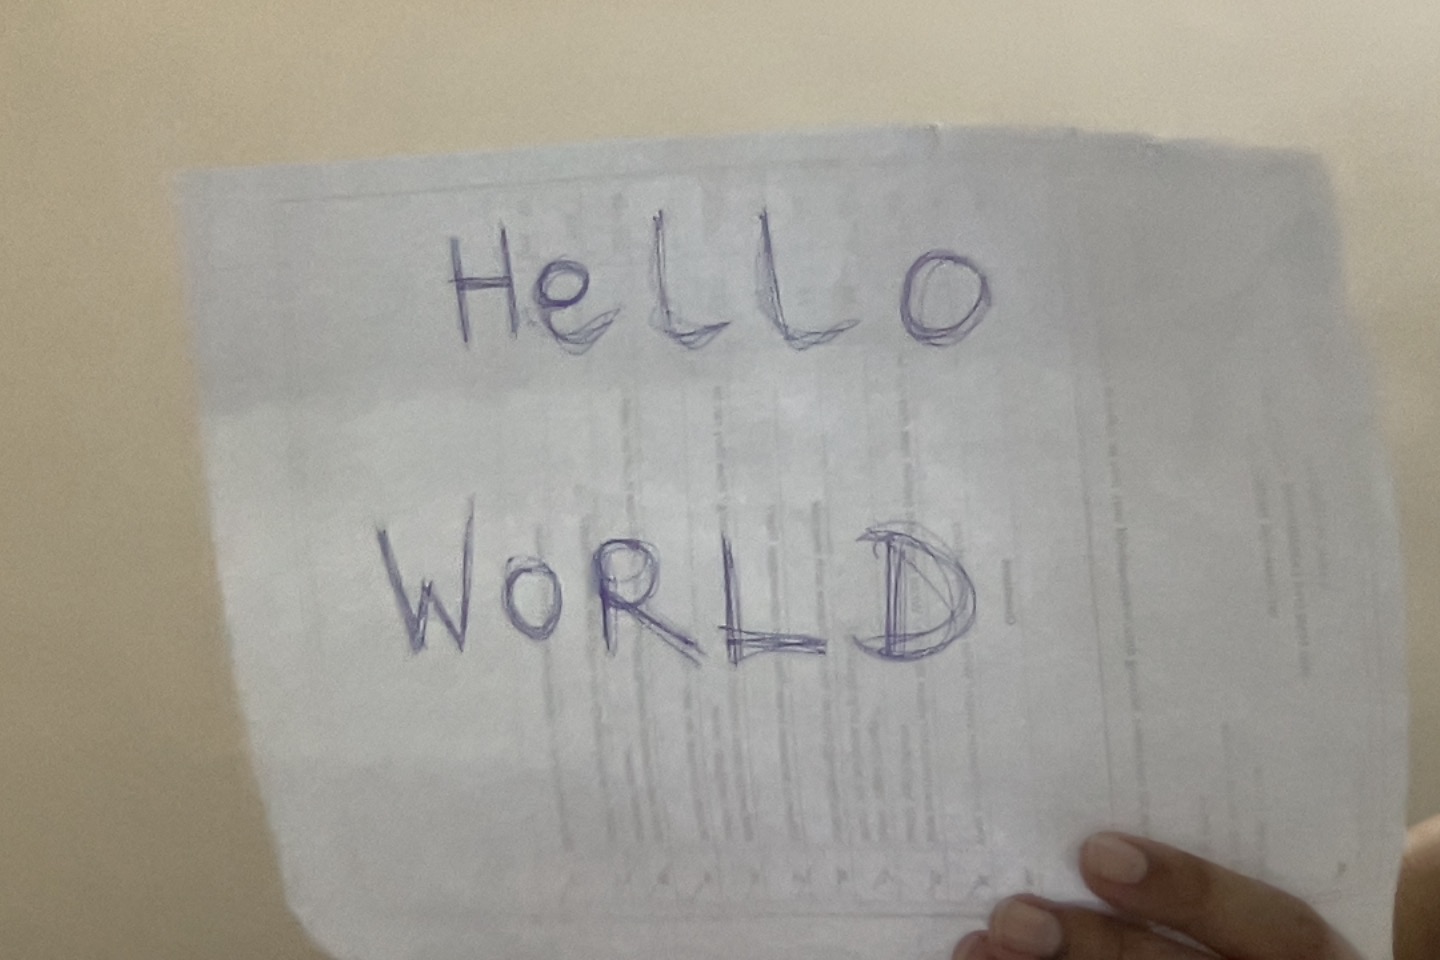 HeLLO
WORLD